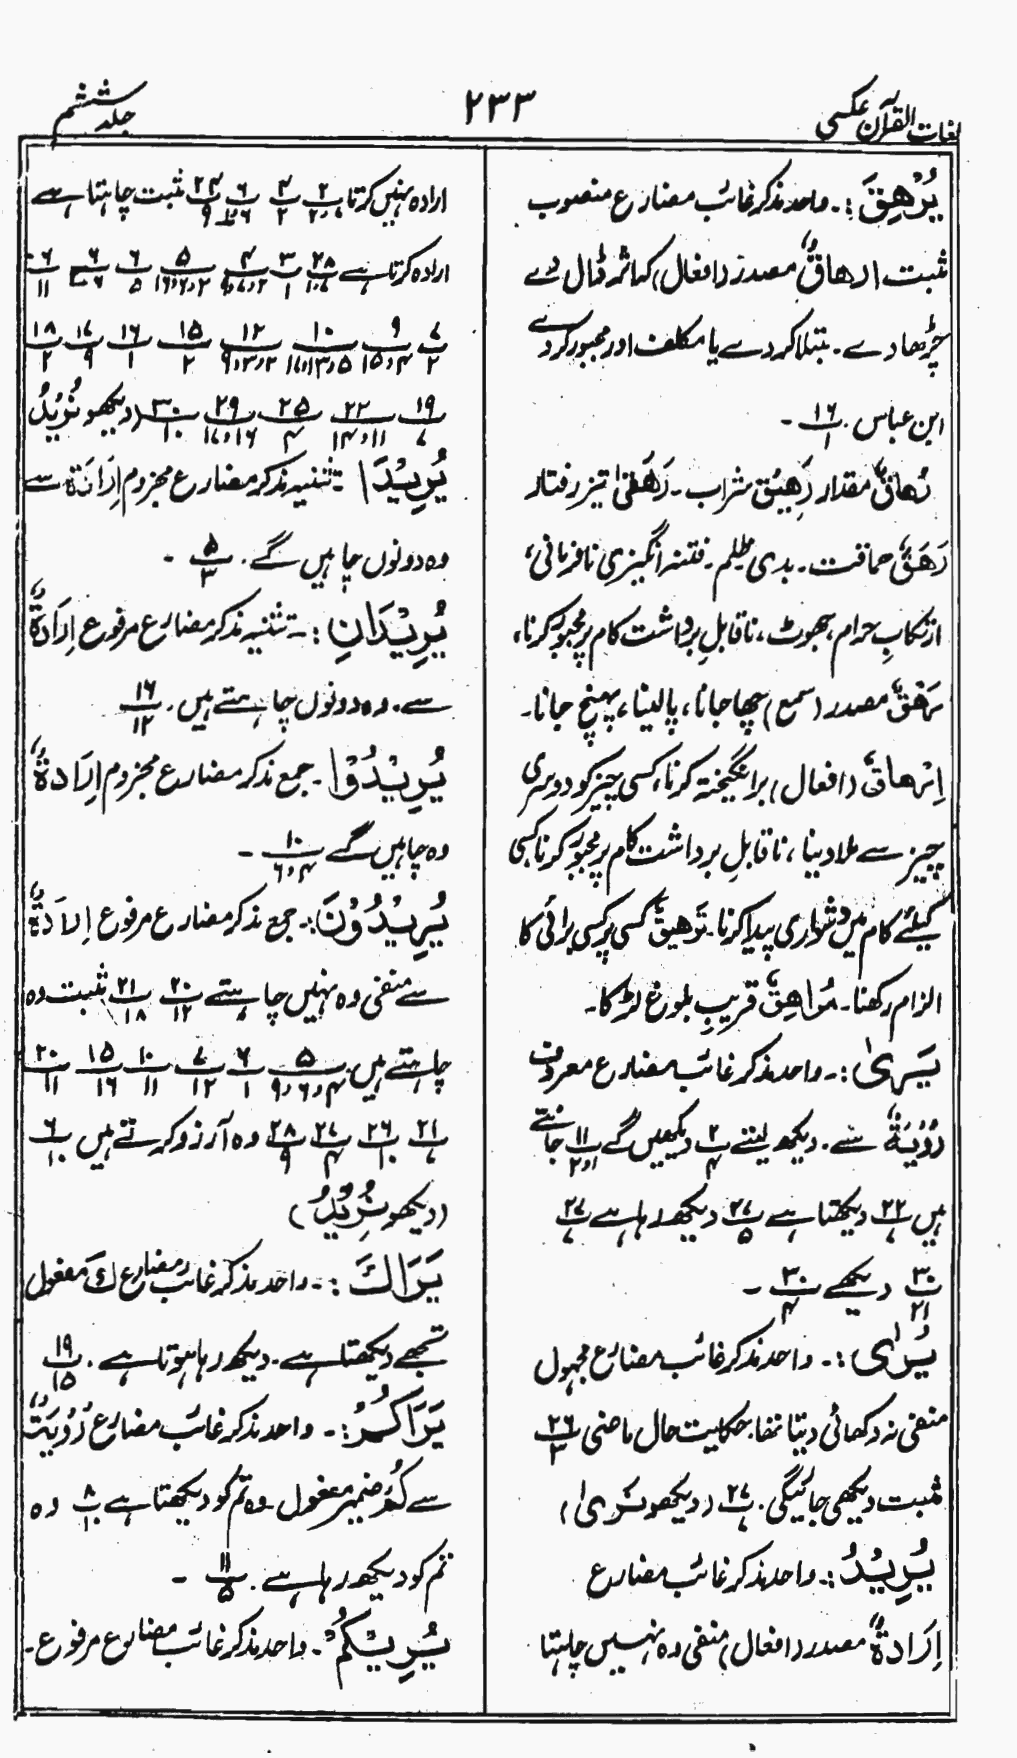 لغات القرآن عکسی
۲۳۳
جلد ششم
یُرْهِقَ:۔ واحد مذکر غائب مضارع منصوب
مثبت ارهاقٌ مصدر (افعال) کہ اثر ڈال دے
چڑھا دے۔ مبتلا کر دے یا مکلف اور مجبور کر دے
ابن عباس ۔ ۱۶/۱ ۔
رُهاقٌ مقدار رَهِیْق شراب۔ رَهَقٰی تیز رفتار
رَهَقٌ حماقت۔ بدی ظلم۔ فتنہ انگیزی نافرمانی،
ارتکابِ حرام، جھوٹ، ناقابلِ برداشت کام پر مجبور کرنا،
رَهْقٌ مصدر (سمع) چھا جانا، پالینا، پہنچ جانا۔
اِرْهاقٌ (افعال) برانگیختہ کرنا، کسی چیز کو دوسری
چیز سے ملا دینا، ناقابلِ برداشت کام پر مجبور کرنا کسی
کیلئے کام میں دشواری پیدا کرنا۔ تَرْهِیقٌ کسی پر کسی برائی کا
الزام رکھنا۔ مُراهِقٌ قریبِ بلوغ لڑکا۔
یَرٰی:۔ واحد مذکر غائب مضارع معروف
رُؤْیَةٌ سے۔ دیکھ لیتے ۲/۴ دیکھیں گے ۱۱/۲،۱ جانتے
ہیں ۲۲/۶ دیکھتا ہے ۲۷/۵ دیکھ رہا ہے ۲۷/۷
۳۰/۲۱ دیکھے ۳۰/۴ ۔
یُرٰی:۔ واحد مذکر غائب مضارع مجہول
منفی نہ دکھائی دیتا تھا۔ حکایت حال ماضی ۲۶/۳
مثبت دیکھی جائیگی۔ ۲۷/۷ (دیکھو نَرٰی)
یُرِیْدُ:۔ واحد مذکر غائب مضارع
اِرَادَةٌ مصدر (افعال) منفی وہ نہیں چاہتا
ارادہ نہیں کرتا، ۲/۷،۲ ۴/۲ ۶/۶ ۲۴/۹ مثبت چاہتا ہے
ارادہ کرتا ہے ۲۸/۱۰،۷ ۳/۱ ۴/۹،۷،۲ ۵/۱۶،۶،۲ ۶/۵ ۶/۷ ۶/۱۱
۷/۲ ۹/۱۵،۴ ۱۰/۱۷،۱۳،۵ ۱۲/۹،۳،۲ ۱۵/۲ ۱۶/۱ ۱۷/۹ ۱۸/۲
۱۹/۷ ۲۲/۱۴،۱۱ ۲۵/۴ ۲۹/۱۷،۱۶ ۳۰/۱۰ (دیکھو نُرِیْدُ
یُرِیْدَا:۔ تثنیہ مذکر مضارع مجزوم اِرَادَة سے
وہ دونوں چاہیں گے۔ ۵/۳ ۔
یُرِیْدَانِ:۔ تثنیہ مذکر مضارع مرفوع اِرَادَةٌ
سے۔ وہ دونوں چاہتے ہیں۔ ۱۶/۱۲
یُرِیْدُوْا۔ جمع مذکر مضارع مجزوم اِرَادَةٌ
وہ چاہیں گے ۱۰/۶،۴ ۔
یُرِیْدُوْنَ:۔ جمع مذکر مضارع مرفوع اِرَادَةٌ
سے منفی وہ نہیں چاہتے ۲۰/۱۲ ۲۱/۱۸ مثبت وہ
چاہتے ہیں۔ ۵/۹،۶،۴ ۶/۱ ۷/۱۲ ۱۰/۱۱ ۱۵/۱۶ ۲۰/۱۱
۲۱/۷ ۲۶/۱۰ ۲۷/۴ ۲۸/۹ وہ آرزو کرتے ہیں ۶/۱۰
(دیکھو نُرِیْدُ)
یَرَاكَ:۔ واحد مذکر غائب مضارع كَ مفعول
تجھے دیکھتا ہے۔ دیکھ رہا ہوتا ہے۔ ۱۹/۱۵
یَرَاکُمْ:۔ واحد مذکر غائب مضارع رُؤْیَتٌ
سے کُمْ ضمیر مفعول۔ وہ تم کو دیکھتا ہے ۸/۱۰ وہ
تم کو دیکھ رہا ہے۔ ۱۱/۵ ۔
یُرِیْکُمْ۔ واحد مذکر غائب مضارع مرفوع۔